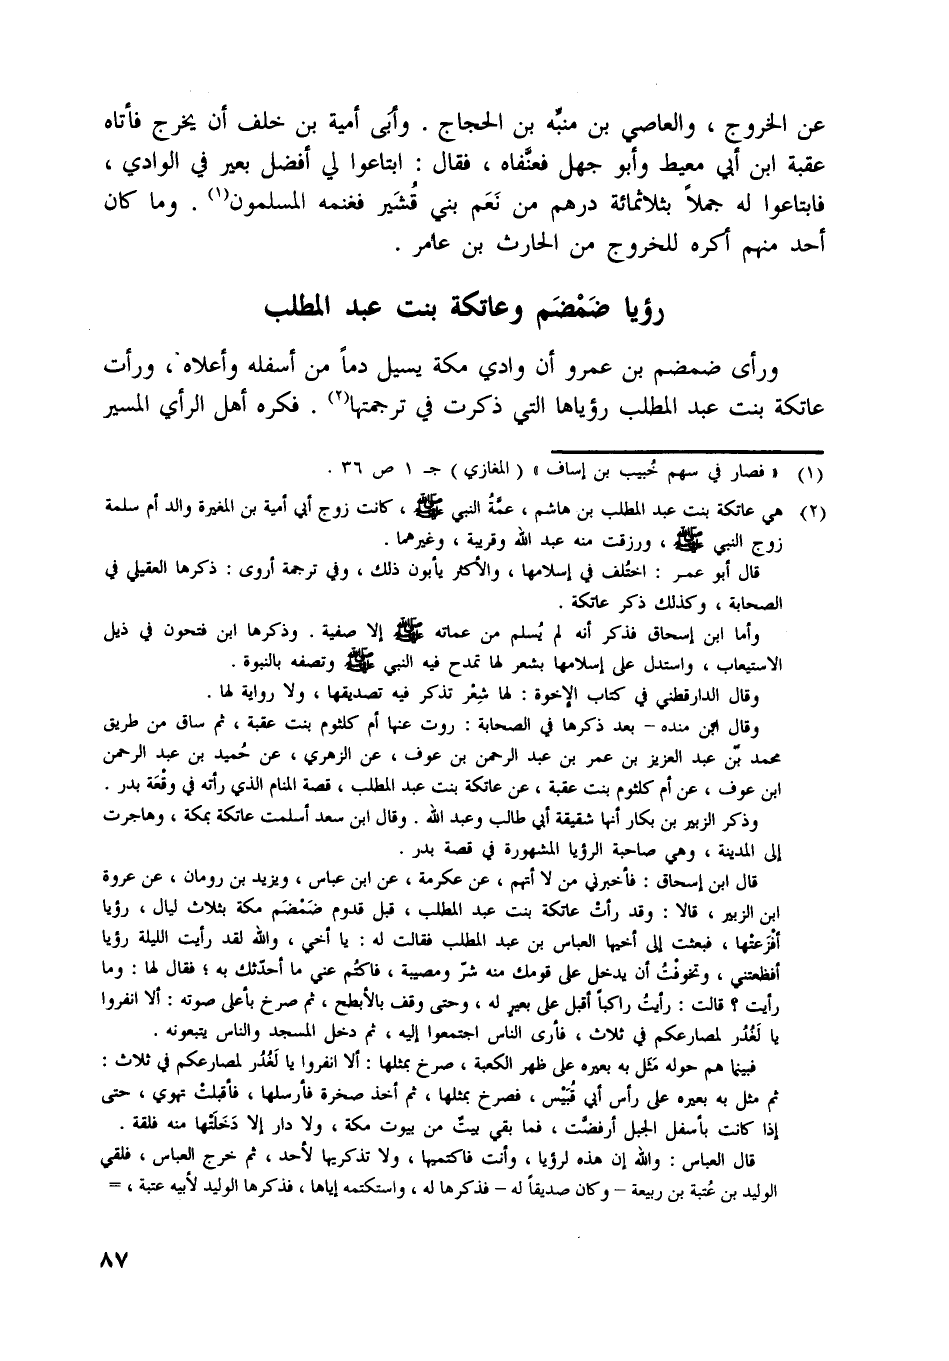 عن الخروج ، والعاصي بن منبِّه بن الحجاج . وأَبَى أمية بن خلف أن يخرج فأتاه
عقبة ابن أبي معيط وأبو جهل فعنَّفاه ، فقال : ابتاعوا لي أفضل بعير في الوادي ،
فابتاعوا له جملاً بثلاثمائة درهم من نَعَم بني قُشَير فغنمه المسلمون(١) . وما كان
أحد منهم أكره للخروج من الحارث بن عامر .
رؤيا ضَمْضَم وعاتكة بنت عبد المطلب
ورأى ضمضم بن عمرو أن وادي مكة يسيل دماً من أسفله وأعلاه ، ورأت
عاتكة بنت عبد المطلب رؤياها التي ذكرت في ترجمتها(٢) . فكره أهل الرأي المسير
(١) « فصار في سهم خُبيب بن إساف » ( المغازي ) جـ ١ ص ٣٦ .
(٢) هي عاتكة بنت عبد المطلب بن هاشم ، عمَّةُ النبي ﷺ ، كانت زوج أبي أمية بن المغيرة والد أم سلمة
زوج النبي ﷺ ، ورزقت منه عبد الله وقريبة ، وغيرهما .
قال أبو عمر : اختُلف في إسلامها ، والأكثر يأبون ذلك ، وفي ترجمة أروى : ذكرها العقيلي في
الصحابة ، وكذلك ذكر عاتكة .
وأما ابن إسحاق فذكر أنه لم يُسلم من عماته ﷺ إلا صفية . وذكرها ابن فتحون في ذيل
الاستيعاب ، واستدل على إسلامها بشعر لها تمدح فيه النبي ﷺ وتصفه بالنبوة .
وقال الدارقطني في كتاب الإخوة : لها شِعْر تذكر فيه تصديقها ، ولا رواية لها .
وقال ابن منده – بعد ذكرها في الصحابة : روت عنها أم كلثوم بنت عقبة ، ثم ساق من طريق
محمد بن عبد العزيز بن عمر بن عبد الرحمن بن عوف ، عن الزهري ، عن حُميد بن عبد الرحمن
ابن عوف ، عن أم كلثوم بنت عقبة ، عن عاتكة بنت عبد المطلب ، قصة المنام الذي رأته في وقْعَة بدر .
وذكر الزبير بن بكار أنها شقيقة أبي طالب وعبد الله . وقال ابن سعد أسلمت عاتكة بمكة ، وهاجرت
إلى المدينة ، وهي صاحبة الرؤيا المشهورة في قصة بدر .
قال ابن إسحاق : فأخبرني من لا أتهم ، عن عكرمة ، عن ابن عباس ، ويزيد بن رومان ، عن عروة
ابن الزبير ، قالا : وقد رأتْ عاتكة بنت عبد المطلب ، قبل قدوم ضَمْضَم مكة بثلاث ليال ، رؤيا
أفْزَعتْها ، فبعثت إلى أخيها العباس بن عبد المطلب فقالت له : يا أخي ، والله لقد رأيت الليلة رؤيا
أفظعتني ، وتخوفْتُ أن يدخل على قومك منه شرّ ومصيبة ، فاكتُم عني ما أحدّثك به ؛ فقال لها : وما
رأيت ؟ قالت : رأيتُ راكباً أقبل على بعيرٍ له ، وحتى وقف بالأبطح ، ثم صرخ بأعلى صوته : ألا انفروا
يا لَغُدُر لمصارعكم في ثلاث ، فأرى الناس اجتمعوا إليه ، ثم دخل المسجد والناس يتبعونه .
فبينما هم حوله مَثَل به بعيره على ظهر الكعبة ، صرخ بمثلها : ألا انفروا يا لَغُدُر لمصارعكم في ثلاث :
ثم مثل به بعيره على رأس أبي قُبَيْس ، فصرخ بمثلها ، ثم أخذ صخرة فأرسلها ، فأقبلتْ تهوي ، حتى
إذا كانت بأسفل الجبل أرفضَّت ، فما بقي بيتٌ من بيوت مكة ، ولا دار إلا دَخَلَتْها منه فلقة .
قال العباس : والله إن هذه لرؤيا ، وأنت فاكتميها ، ولا تذكريها لأحد ، ثم خرج العباس ، فلقي
الوليد بن عُتبة بن ربيعة – وكان صديقاً له – فذكرها له ، واستكتمه إياها ، فذكرها الوليد لأبيه عتبة ، =
٨٧